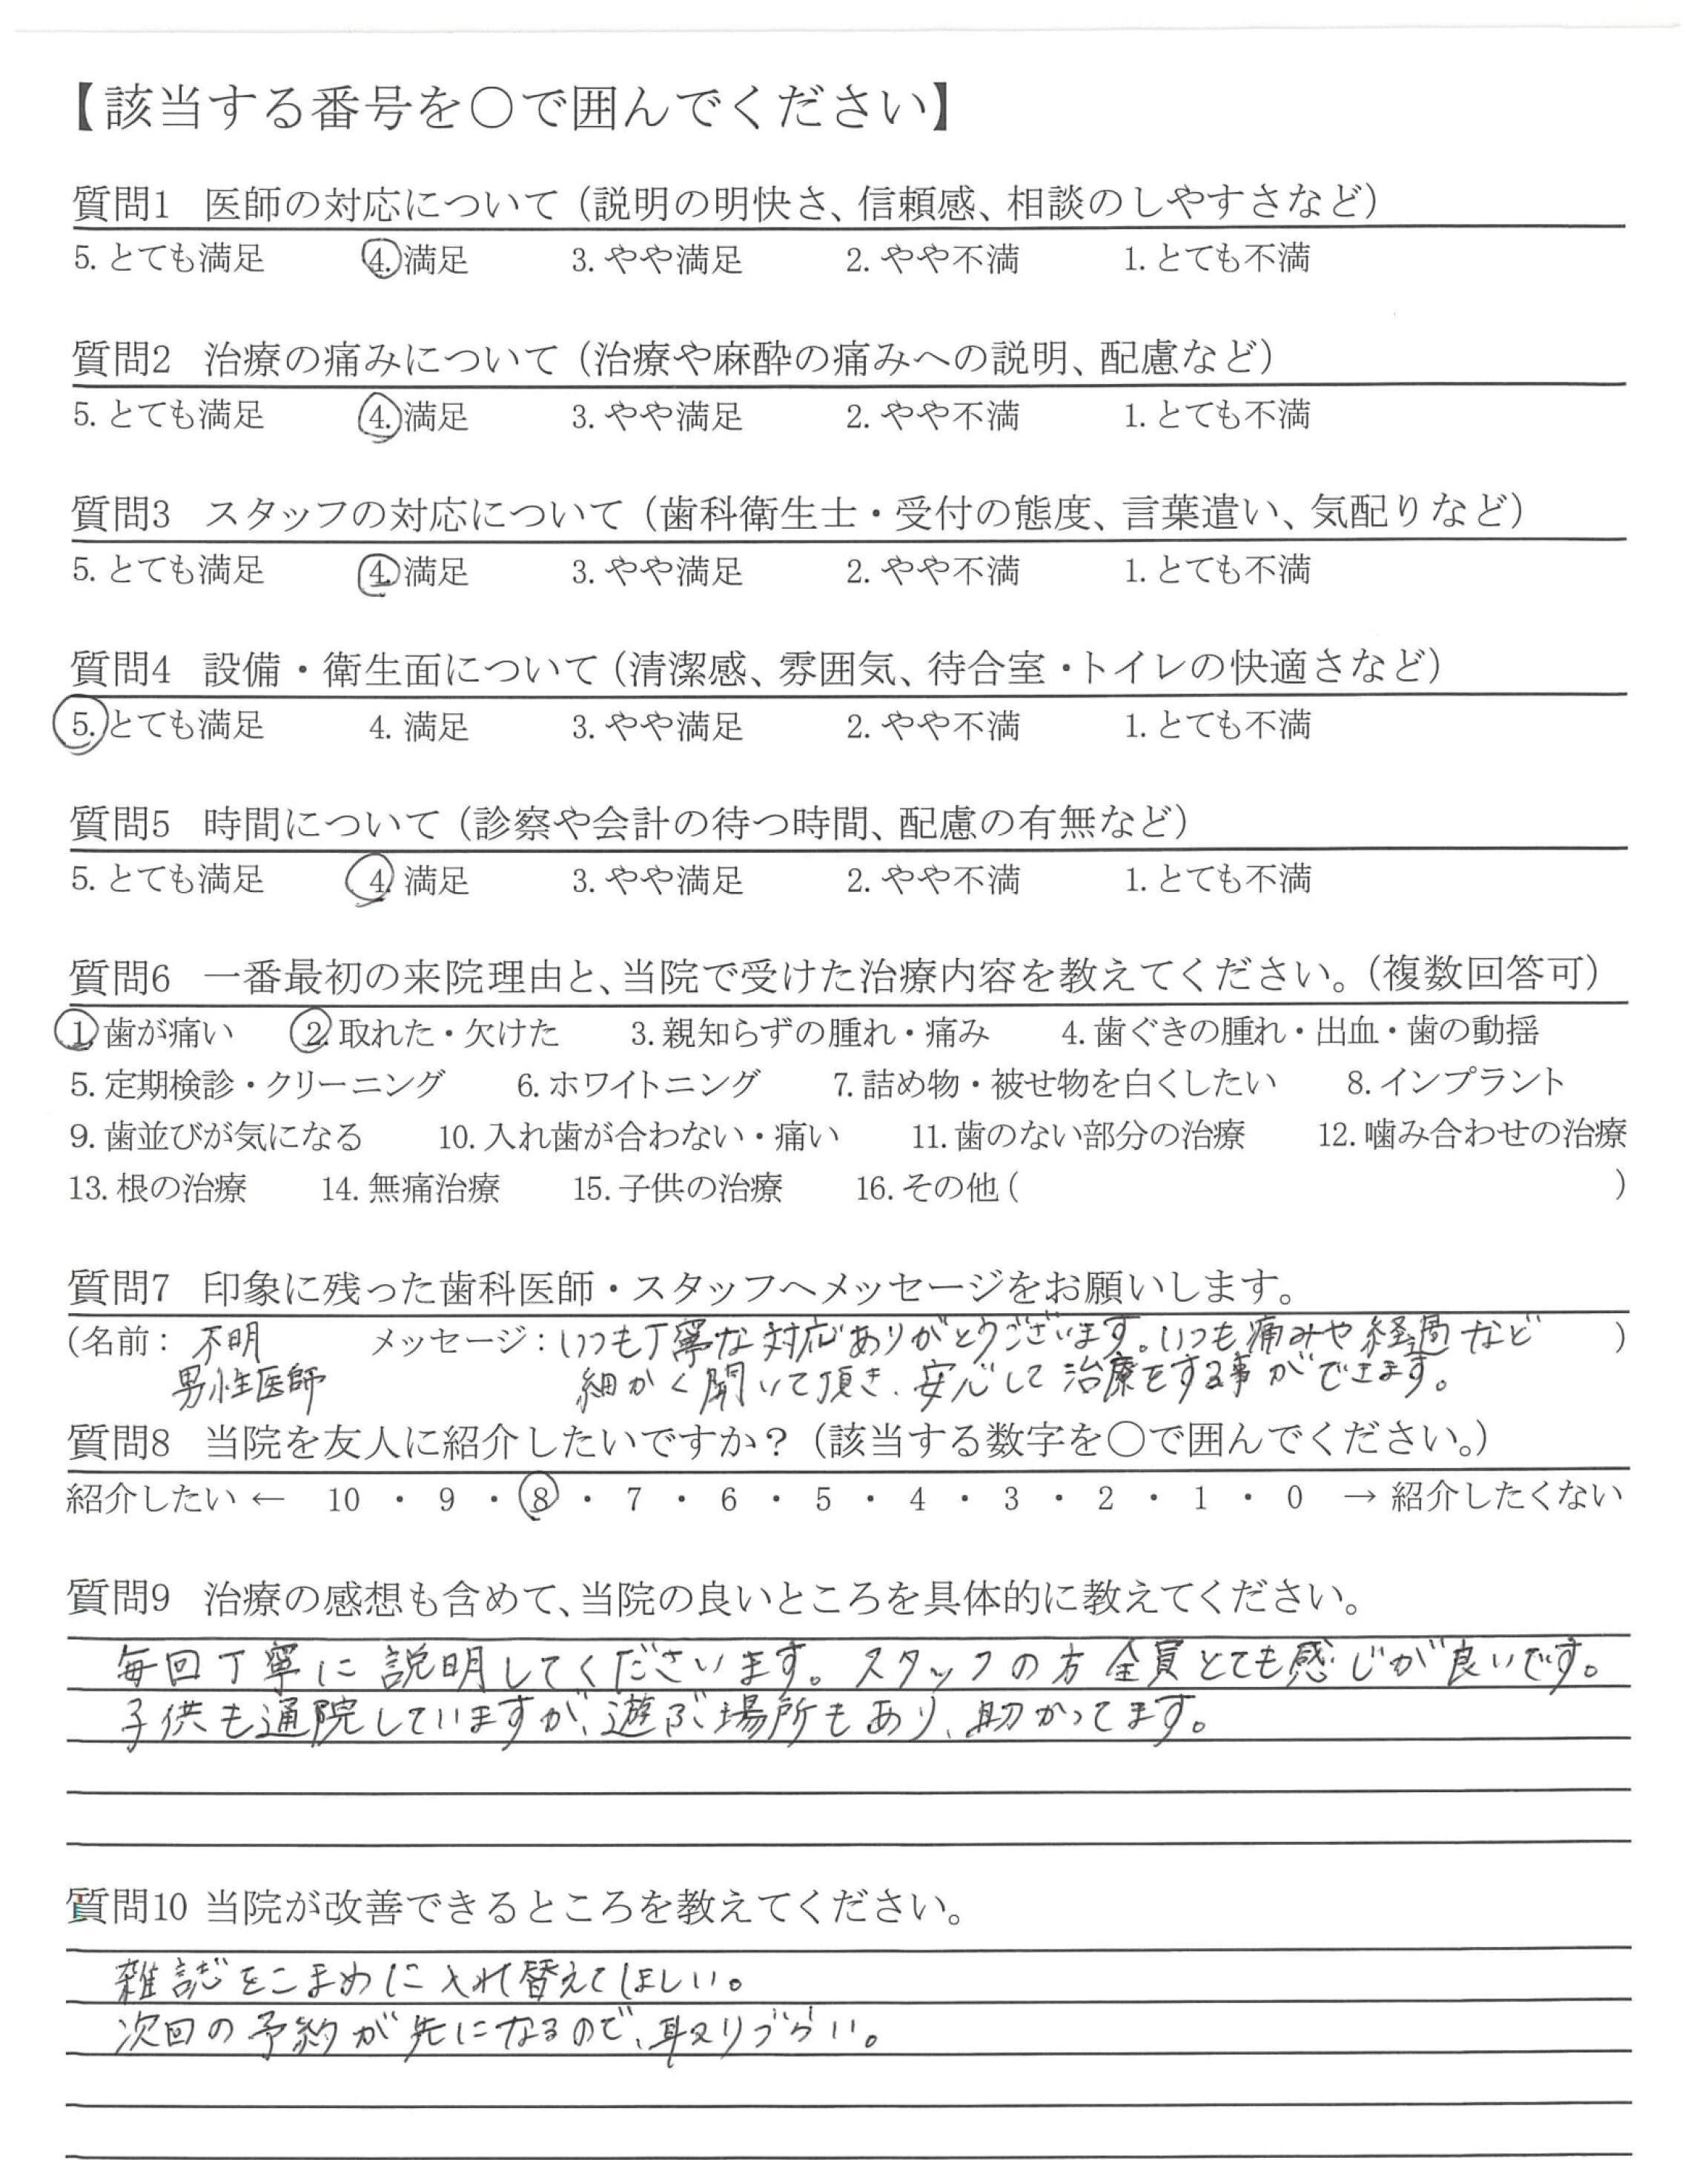 【該当する番号を○で囲んでください】
質問1 医師の対応について（説明の明快さ、信頼感、相談のしやすさなど）
5. とても満足 4. 満足 3. やや満足 2. やや不満 1. とても不満
質問2 治療の痛みについて（治療や麻酔の痛みへの説明、配慮など）
5. とても満足 4. 満足 3. やや満足 2. やや不満 1. とても不満
質問3 スタッフの対応について（歯科衛生士・受付の態度、言葉遣い、気配りなど）
5. とても満足 4. 満足 3. やや満足 2. やや不満 1. とても不満
質問4 設備・衛生面について（清潔感、雰囲気、待合室・トイレの快適さなど）
5. とても満足 4. 満足 3. やや満足 2. やや不満 1. とても不満
質問5 時間について（診察や会計の待つ時間、配慮の有無など）
5. とても満足 4. 満足 3. やや満足 2. やや不満 1. とても不満
質問6 一番最初の来院理由と、当院で受けた治療内容を教えてください。（複数回答可）
1. 歯が痛い 2. 取れた・欠けた 3. 親知らずの腫れ・痛み 4. 歯ぐきの腫れ・出血・歯の動揺
5. 定期検診・クリーニング 6. ホワイトニング 7. 詰め物・被せ物を白くしたい 8. インプラント
9. 歯並びが気になる 10. 入れ歯が合わない・痛い 11. 歯のない部分の治療 12. 噛み合わせの治療
13. 根の治療 14. 無痛治療 15. 子供の治療 16. その他（ ）
質問7 印象に残った歯科医師・スタッフへメッセージをお願いします。
（名前： 不明 メッセージ：いつも丁寧な対応ありがとうございます。いつも痛みや経過など ）
男性医師 細かく聞いて頂き、安心して治療をする事ができます。
質問8 当院を友人に紹介したいですか？（該当する数字を○で囲んでください。）
紹介したい ← 10 ・ 9 ・ 8 ・ 7 ・ 6 ・ 5 ・ 4 ・ 3 ・ 2 ・ 1 ・ 0 → 紹介したくない
質問9 治療の感想も含めて、当院の良いところを具体的に教えてください。
毎回丁寧に説明してくださいます。スタッフの方全員とても感じが良いです。
子供も通院していますが、遊ぶ場所もあり、助かってます。
質問10 当院が改善できるところを教えてください。
雑誌をこまめに入れ替えてほしい。
次回の予約が先になるので、取りづらい。